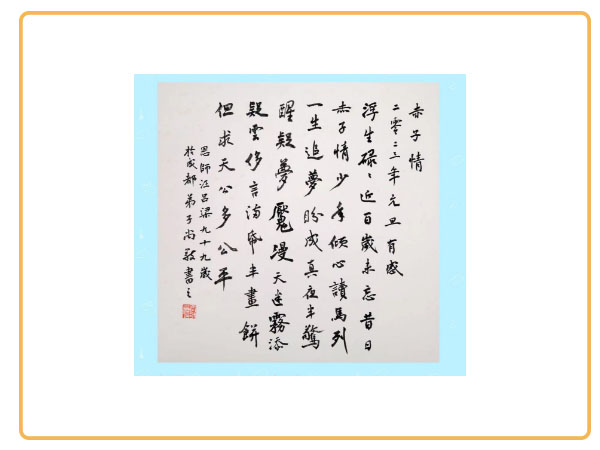 赤子情
二零二三年元旦有感
浮生碌碌近百歲未忘昔日
赤子情少年傾心讀馬列
一生追夢盼成真夜半驚
醒疑夢魘漫天迷霧添
疑雲侈言滿紙半畫餅
但求天公多公平
恩師呂梁九十九歲
於成都弟子尚書之